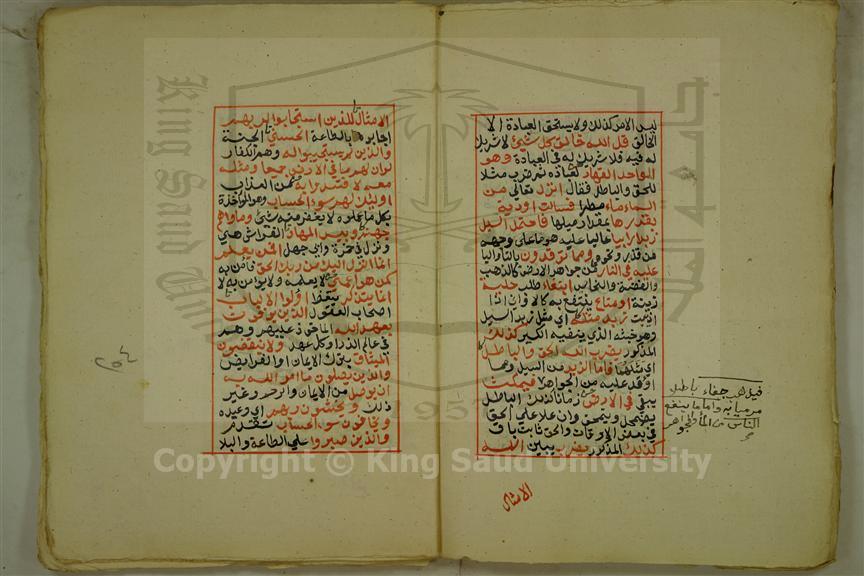 ليس الامر كذلك ولا يستحق العبادة الا
الخالق قل الله خالق كل شيئ لا شريك
له فيه فلا شريك له في العبادة وهو
الواحد القهار لعباده ثم ضرب مثلا
للحق والباطل فقال انزل تعالى من
السماء ماء مطرا فسالت اودية
بقدرها بمقدار ميلها فاحتمل السيل
زبدا رابيا عاليا عليه هو ما على وجهه
من قذر ونحوه ومما توقدون بالتا واليا
عليه في النار من جواهر الارض كالذهب
والفضة والنحاس ابتغاء طلب حلية
زينة او متاع ينتفع به كالاواني اذا
اذيبت زبد مثله اي مثل زبد السيل
وهو خبثه الذي ينفيه الكير كذلك
المذكور يضرب الله الحق والباطل
اي مثلهما فاما الزبد من السيل وما
اوقد عليه من الجواهر فيمكث
يبقى في الارض زمانا كذلك الباطل
يضمحل وينمحق وان علا على الحق
في بعض الاوقات والحق ثابت باق
كذلك المذكور يضرب يبين الله
الامثال
فيذهب جفاء باطلا
مرميا به واما ما ينفع
الناس من الماء والجواهر
الامثال للذين استجابوا لربهم
اجابوه بالطاعة الحسنى الجنة
والذين لم يستجيبوا له وهم الكفار
لو ان لهم ما في الارض جميعا ومثله
معه لافتدوا به من العذاب
اوليك لهم سوء الحساب وهو المواخذة
بكل ما عملوه لا يغفر منه شئ وماواهم
جهنم وبيس المهاد الفراش هي
ونزل في حمزة وابي جهل افمن يعلم
انما انزل اليك من ربك الحق فامن به
كمن هو اعمى لا يعلمه ولا يومن به لا
انما يتذكر يتعظ اولوا الالباب
اصحاب العقول الذين يوفون
بعهد الله الماخوذ عليهم وهم
في عالم الذر او كل عهد ولا ينقضون
الميثاق بترك الايمان او الفرايض
والذين يصلون ما امر الله به
ان يوصل من الايمان والرحم وغير
ذلك ويخشون ربهم اي وعيده
ويخافون سوء الحساب تقدم
والذين صبروا على الطاعة والبلا
King Saud University
جامعة الملك
1957
Copyright © King Saud University